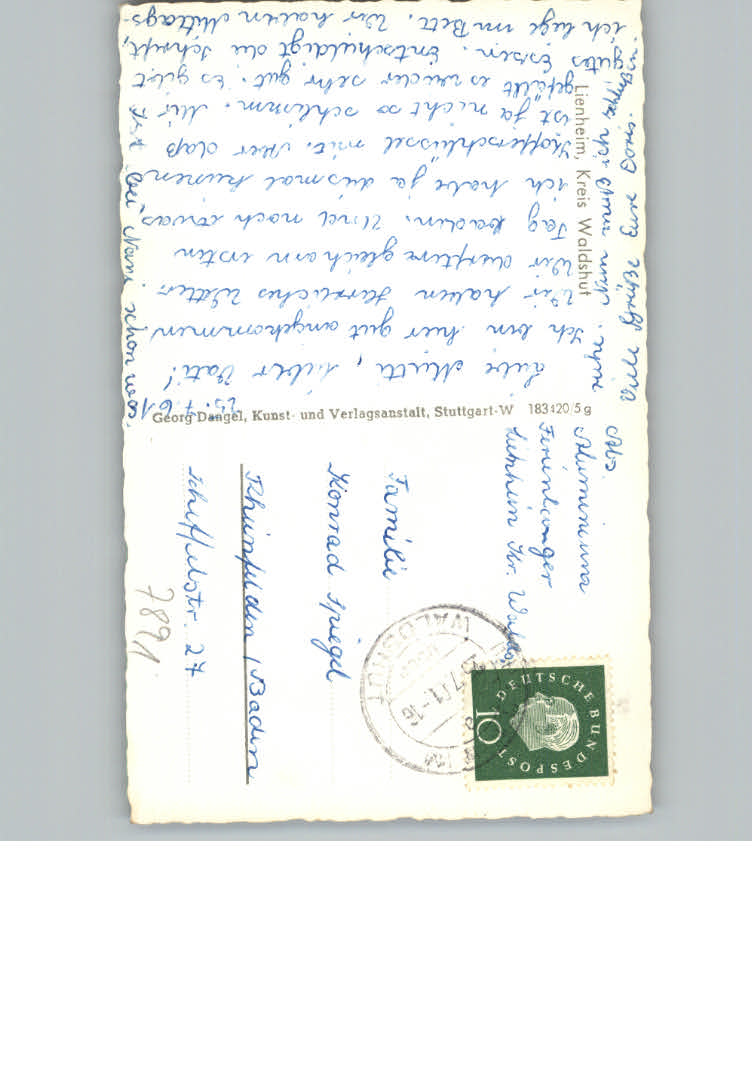 Lienheim, Kreis Waldshut
25.7.61.
Liebe Mutti, lieber Vati!
Ich bin hier gut angekommen,
Wir haben herrliches Wetter.
Wir durften gleich am ersten
Tag baden. Und noch etwas
ich habe ja diesmal keinen
Kofferschlüssel mit. Aber das
ist ja nicht so schlimm. Mir
gefällt es wieder sehr gut. Es gibt
gutes Essen. Entschuldigt die Schrift,
ich liege im Bett. Wir haben Mittags-
ruhe. Nun muß ich
Viele Grüße Eure Doris.
Ist bei Nani schon was?
Georg Dangel, Kunst- und Verlagsanstalt, Stuttgart-W 183420/5 g
Abs.
Aluminium
Ferienlager
Lienheim Kr. Waldshut
Familie
Konrad Spiegel
Rheinfelden / Baden
Scheffelstr. 27
7891
WALDSHUT
DEUTSCHE BUNDESPOST
10